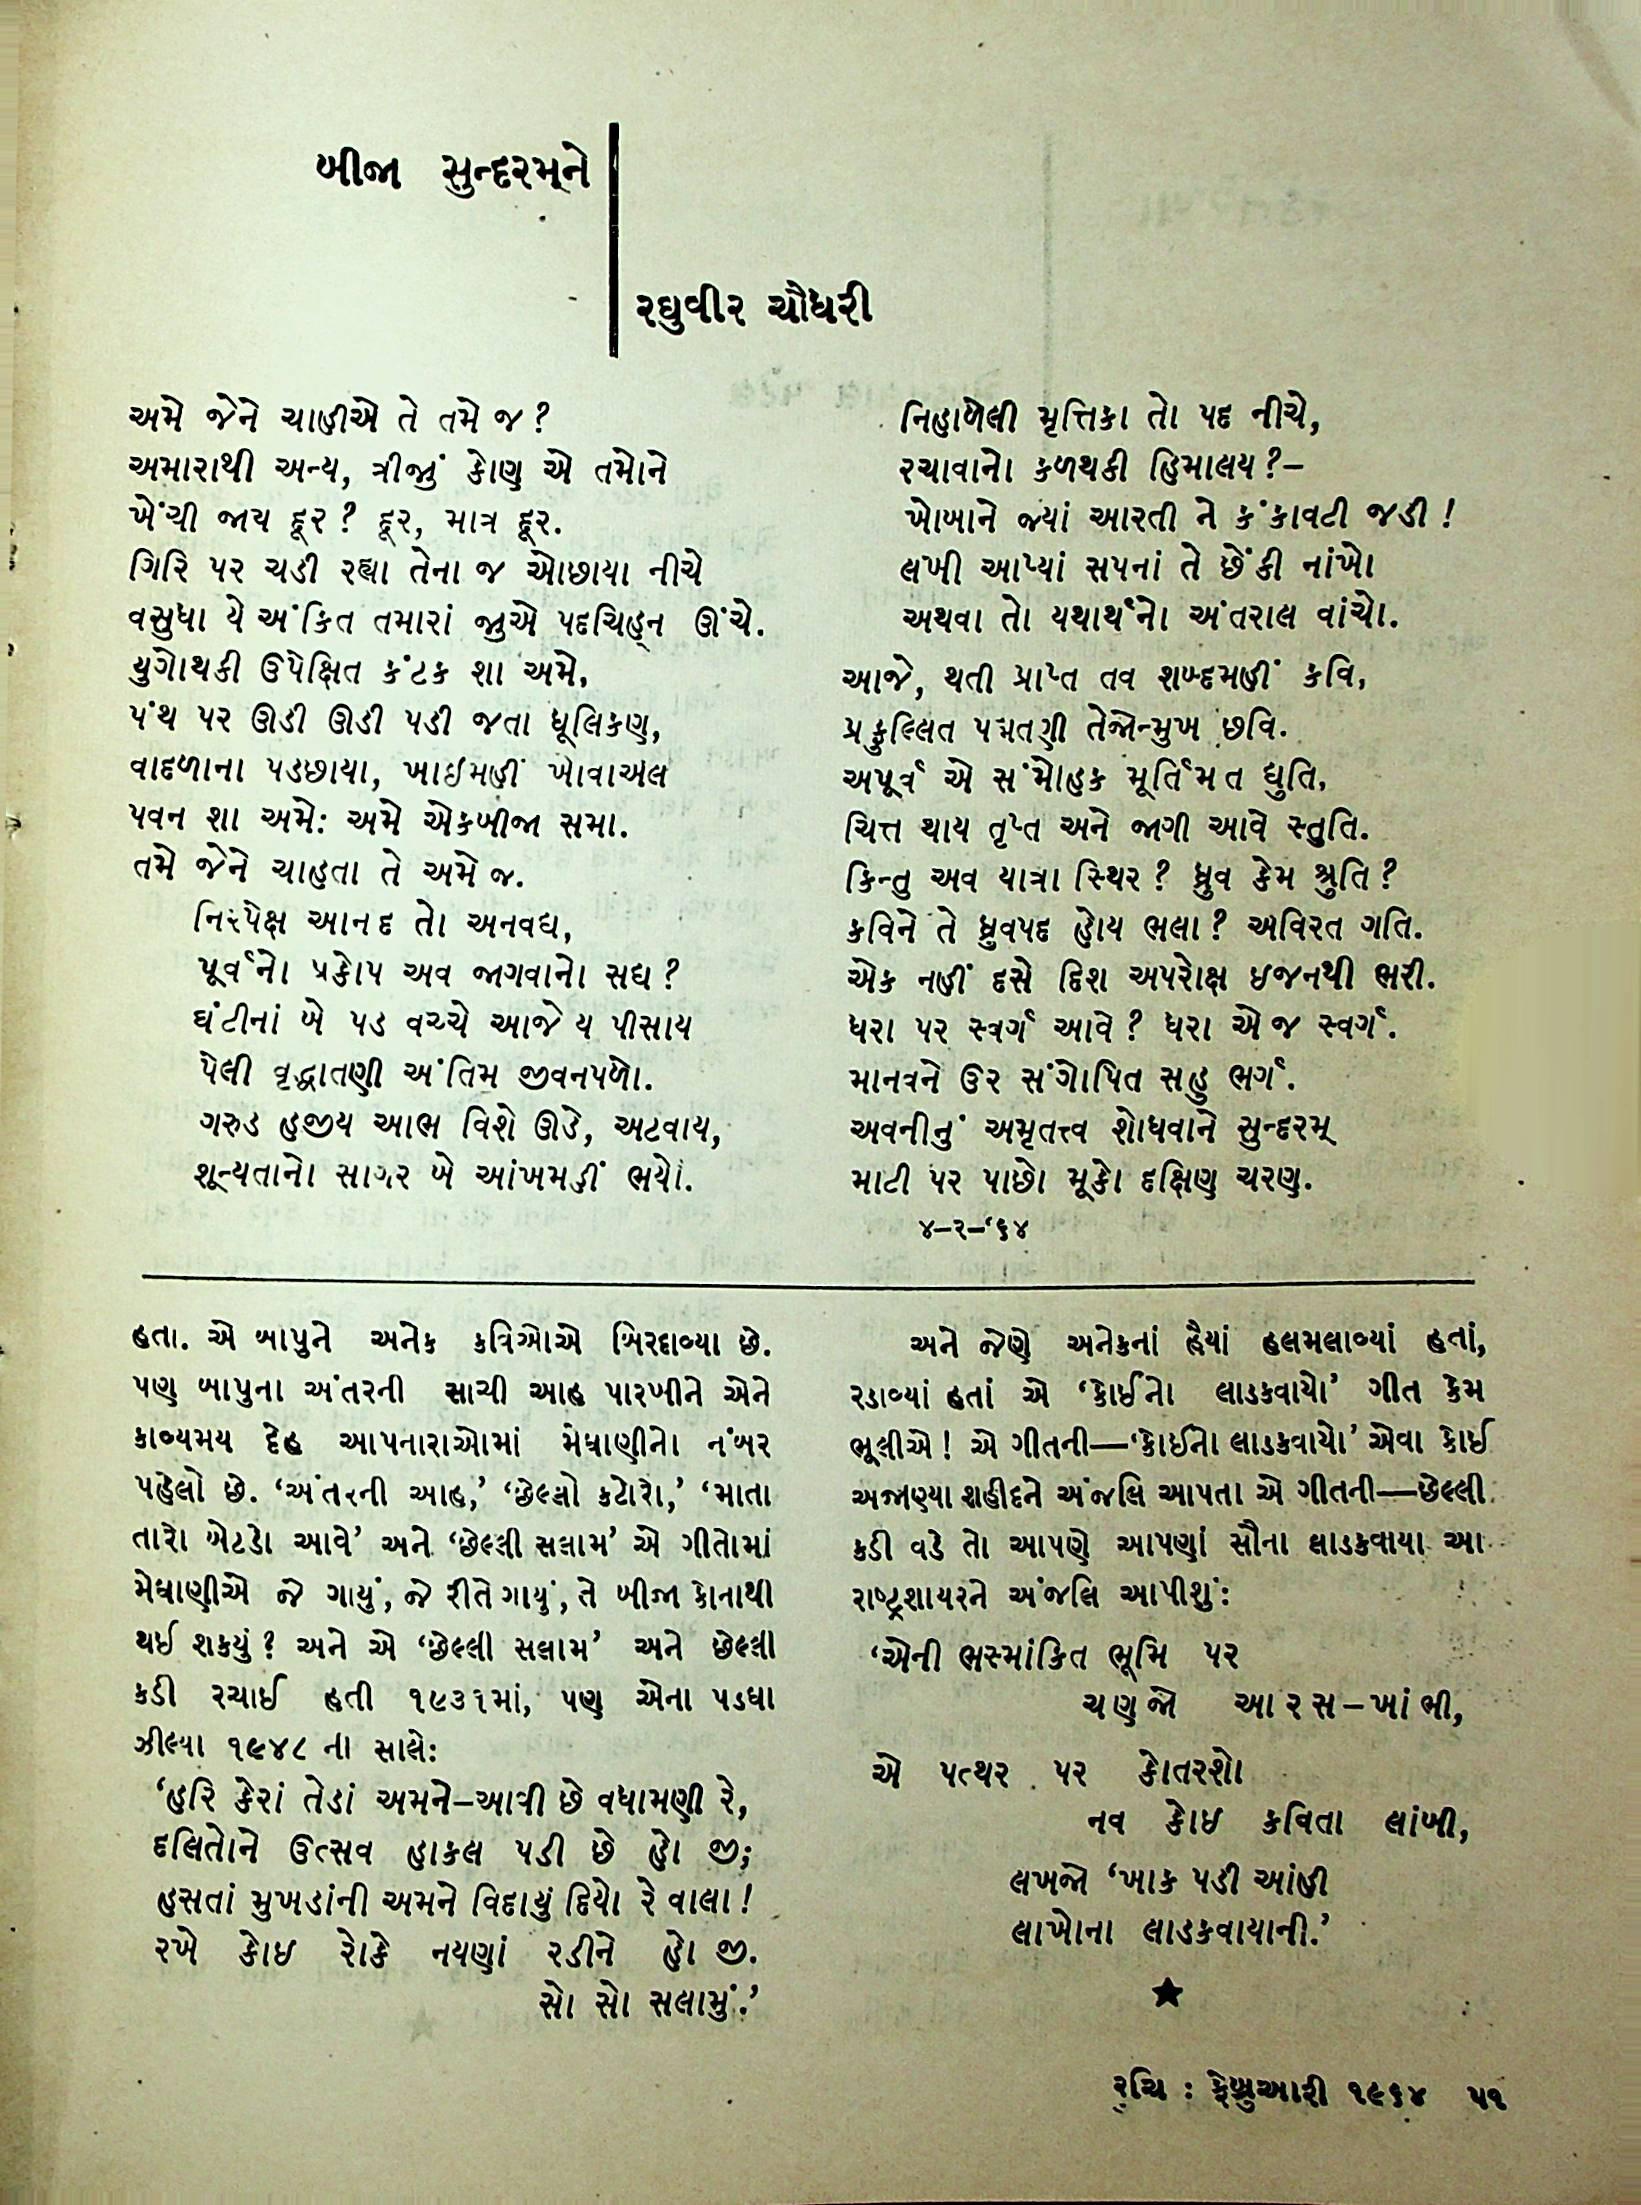 બીજા સુન્દરમ્‌ને
રઘુવીર ચૌધરી
અમે જેને ચાહીએ તે તમે જ?
અમારાથી અન્ય, ત્રીજું કોણ એ તમોને
ખેંચી જાય દૂર? દૂર, માત્ર દૂર.
ગિરિ પર ચડી રહ્યા તેના જ ઓછાયા નીચે
વસુધા યે અંકિત તમારાં જુએ પદચિહ્‌ન ઊંચે.
યુગોથકી ઉપેક્ષિત કંટક શા અમે,
પંથ પર ઊડી ઊડી પડી જતા ધૂલિકણ,
વાદળાના પડછાયા, ખાઇમહીં ખોવાએલ
પવન શા અમે: અમે એકબીજા સમા.
તમે જેને ચાહતા તે અમે જ.
નિરપેક્ષ આનંદ તો અનવદ્ય,
પૂર્વનો પ્રકોપ અવ જાગવાનો સદ્ય?
ઘંટીનાં બે પડ વચ્ચે આજે ય પીસાય
પેલી વૃદ્ધાતણી અંતિમ જીવનપળો.
ગરુડ હજીય આભ વિશે ઊડે, અટવાય,
શૂન્યતાનો સાગર બે આંખમહીં ભર્યો.
નિહાળેલી મૃત્તિકા તો પદ નીચે,
રચાવાનો કળથકી હિમાલય?–
ખોબાને જ્યાં આરતી ને કંકાવટી જડી!
લખી આપ્યાં સપનાં તે છેંકી નાંખો
અથવા તો યથાર્થનો અંતરાલ વાંચો.
આજે, થતી પ્રાપ્ત તવ શબ્દમહીં કવિ,
પ્રફુલ્લિત પદ્મતણી તેજોન્મુખ છવિ.
અપૂર્વ એ સંમોહક મૂર્તિમંત દ્યુતિ,
ચિત્ત થાય તૃપ્ત અને જાગી આવે સ્તુતિ.
કિન્તુ અવ યાત્રા સ્થિર? ધ્રુવ કેમ શ્રુતિ?
કવિને તે ધ્રુવપદ હોય ભલા? અવિરત ગતિ.
એક નહીં દસે દિશ અપરોક્ષ ઇજનથી ભરી.
ધરા પર સ્વર્ગ આવે? ધરા એ જ સ્વર્ગ.
માનવને ઉર સંગોપિત સહુ ભર્ગ.
અવનીનું અમૃતત્ત્વ શોધવાને સુન્દરમ્
માટી પર પાછો મૂકો દક્ષિણ ચરણ.
૪–૨–‘૬૪
હતા. એ બાપુને અનેક કવિઓએ બિરદાવ્યા છે.
પણ બાપુના અંતરની સાચી આહ પારખીને એને
કાવ્યમય દેહ આપનારાઓમાં મેઘાણીનો નંબર
પહેલો છે. ‘અંતરની આહ,’ ‘છેલ્લો કટોરો,’ ‘માતા
તારો બેટડો આવે’ અને ‘છેલ્લી સલામ’ એ ગીતોમાં
મેઘાણીએ જે ગાયું, જે રીતે ગાયું, તે બીજા કોનાથી
થઈ શકયું? અને એ ‘છેલ્લી સલામ’ અને છેલ્લી
કડી રચાઈ હતી ૧૯૩૧માં, પણ એના પડઘા
ઝીલ્યા ૧૯૪૮ ના સાલે:
‘હરિ કેરાં તેડાં અમને–આવી છે વધામણી રે,
દલિતોને ઉત્સવ હાકલ પડી છે હો જી;
હસતાં મુખડાંની અમને વિદાયું દિયો રે વાલા!
રખે કોઇ રોકે નયણાં રડીને હો જી.
સો સો સલામું.’
અને જેણે અનેકનાં હૈયાં હલમલાવ્યાં હતાં,
રડાવ્યાં હતાં એ ‘કોઈનો લાડકવાયો’ ગીત કેમ
ભૂલીએ! એ ગીતની—‘કોઈનો લાડકવાયો’ એવા કોઈ
અજાણ્યા શહીદને અંજલિ આપતા એ ગીતની—છેલ્લી
કડી વડે તો આપણે આપણાં સૌના લાડકવાયા આ
રાષ્ટ્રશાયરને અંજલિ આપીશું:
‘એની ભસ્માંકિત ભૂમિ પર
ચણજો આરસ–ખાંભી,
એ પત્થર પર કોતરશો
નવ કોઇ કવિતા લાંબી,
લખજો ‘ખાક પડી આંહી
લાખોના લાડકવાયાની.’
★
રુચિ : ફેબ્રુઆરી ૧૯૬૪ ૫૧